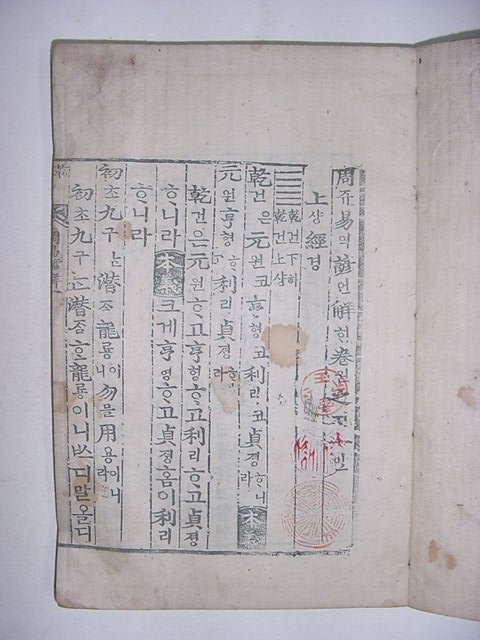 周쥬易역諺언解ᄒᆡ卷권之지
上샹經경
乾건下하
乾건上샹
乾건은元원코亨형코利리코貞졍ᄒᆞ니라 本
元원亨형ᄒᆞ利리貞졍ᄒᆞ라
乾건은元원ᄒᆞ고亨형ᄒᆞ고利리ᄒᆞ고貞졍
ᄒᆞ니라 本 크게亨형ᄒᆞ고貞졍홈이利리
ᄒᆞ니라
初초九구ᄂᆞᆫ潛ᄌᆞᆷ龍룡이니勿믈用용이니라
初초九구ᄂᆞᆫ潛ᄌᆞᆷᄒᆞᆫ龍룡이니ᄡᅳ디말올디